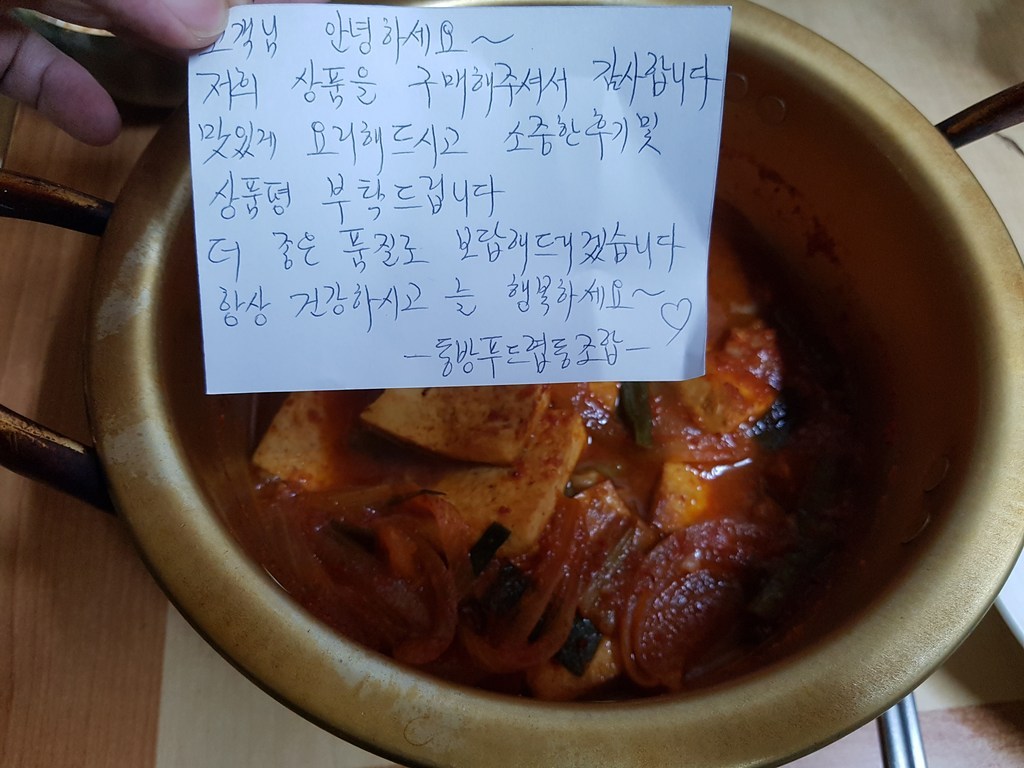 고객님 안녕하세요~
저희 상품을 구매해주셔서 감사합니다
맛있게 요리해드시고 소중한후기및
상품평 부탁드립니다
더 좋은 품질로 보답해드리겠습니다
항상 건강하시고 늘 행복하세요~♡
-동방푸드협동조합-